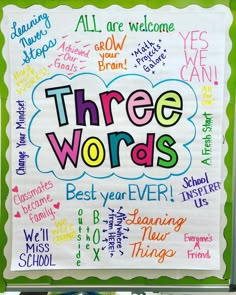 Learning
Never
Stops
ALL are welcome
Achieved
our
Goals
GROW
your
Brain!
Math
Projects
Galore
YES
WE
CAN!
Change Your Mindset
Three
Words
A Fresh Start
Best year EVER!
SCHOOL
INSPIRES
US
Classmates
became
Family.
WE'll
MISS
SCHOOL
outside
the
BOX
Anywhere
from HERE
Learning
New
Things
Everyone's
A
Friend